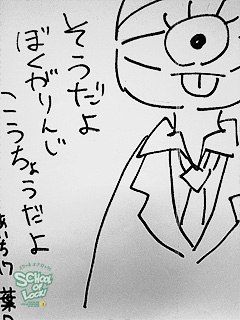 そうだよ
ぼくがりんじ
こうちょうだよ
SCHOOL
OF
LOCK!